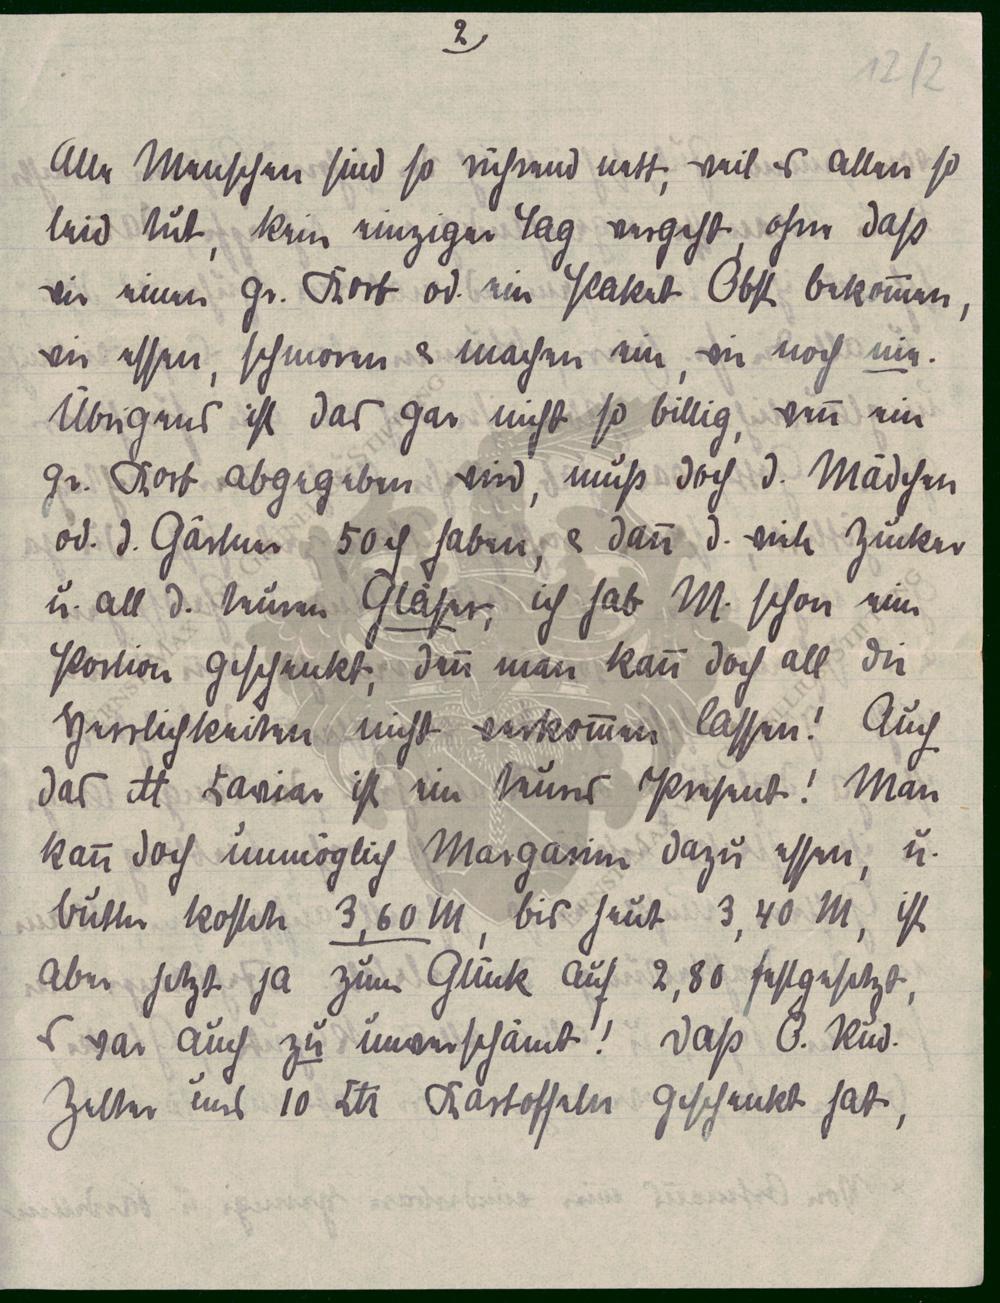 2
12/2
Alle Menschen sind so rührend nett, weil es allen so
leid tut, kein einziger Tag vergeht, ohne daß
wir einen gr. Korb od. ein Paket Obst bekom̅en,
wir essen, schmoren & machen ein, wie noch nie.
Übrigens ist das gar nicht so billig, wen̅ ein
gr. Korb abgegeben wird, muß doch d. Mädchen
od. d. Gärtner 50 ₰ haben, & dan̅ d. viele Zucker
u. all d. teuren Gläser, ich hab M. schon eine
Portion geschenkt, den̅ man kan̅ doch all die
Herrlichkeiten nicht verkom̅en lassen! Auch
das ℔ Kaviar ist ein teures Present! Man
kan̅ doch unmöglich Margarine dazu essen, u.
Butter kostete 3,60 M, bis heut 3,40 M, ist
aber jetzt ja zum Glück auf 2,80 festgesetzt,
es war auch zu unverschämt! Daß O. Rud.
Zelter uns 10 Ctr Kartoffeln geschenkt hat,